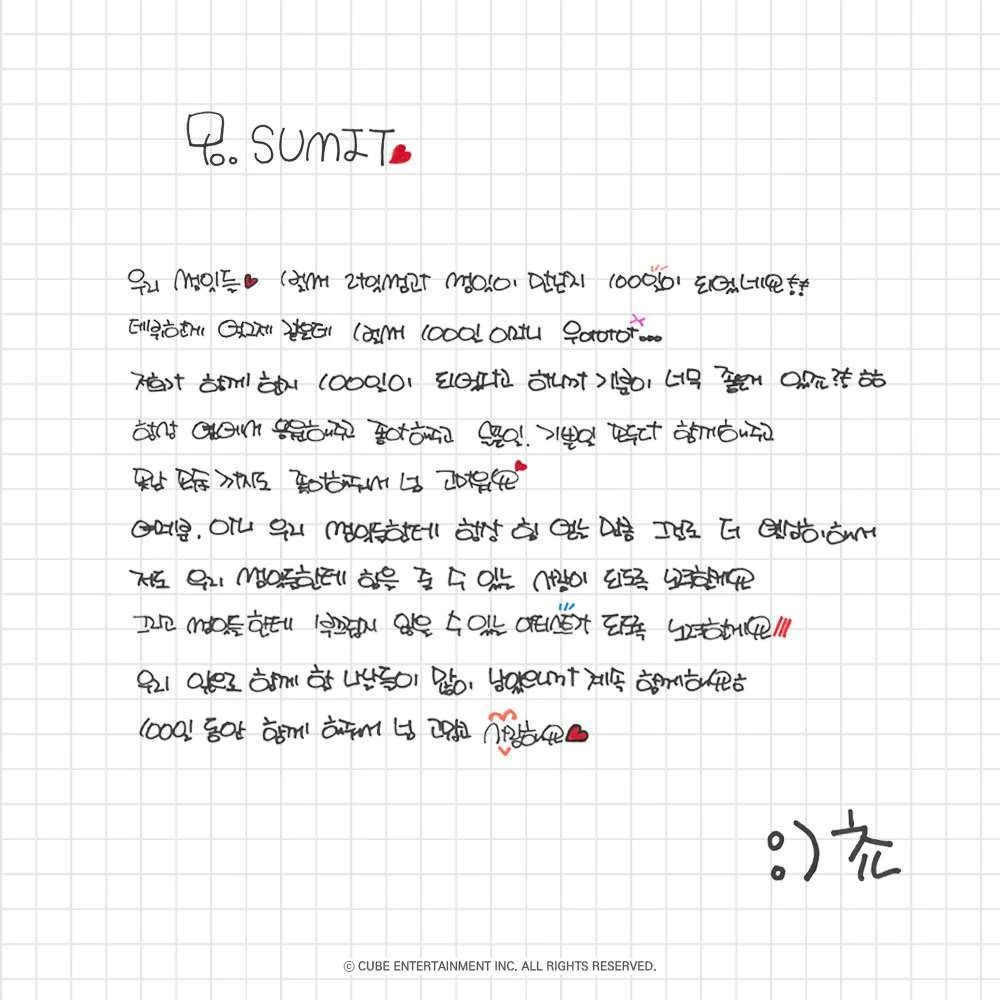 To. SUMMIT♥
우리 썸잇들♥ 벌써 라잇썸과 썸잇이 만난지 100일이 되었네요!!
데뷔한게 엊그제 같은데 벌써 100일 이라니 우아아아...
저희가 함께한지 100일이 되었다고 하니까 기분이 너무 좋은거 있죠?! ㅎㅎ
항상 옆에서 응원해주고 좋아해주고 슬픈일, 기쁜일 모두다 함께해주고
못난 모습 까지도 좋아해줘서 넘 고마워요
여러분, 아니 우리 썸잇들한테 항상 힘 얻는 만큼 그걸로 더 열심히해서
저도 우리 썸잇들한테 힘을 줄 수 있는 사람이 되도록 노력할게요
그리고 썸잇들한테 부끄럽지 않을 수 있는 아티스트가 되도록 노력할게요!!!
우리 앞으로 함께 할 나날들이 많이 남았으니까 계속 함께해요ㅎ
100일 동안 함께 해줘서 넘 고맙고 사랑해요♥
:)
© CUBE ENTERTAINMENT INC. ALL RIGHTS RESERVED.